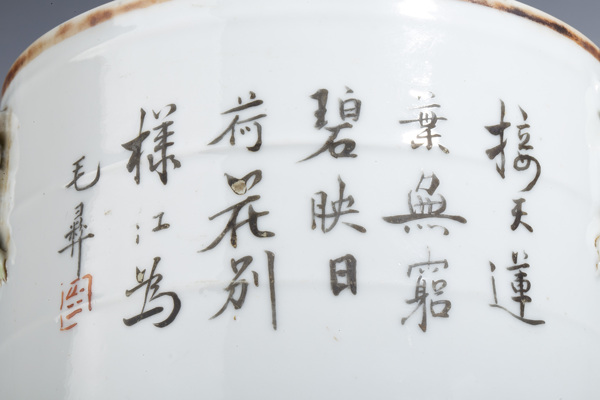 接天蓮
葉無窮
碧映日
荷花別
樣江為
毛彝